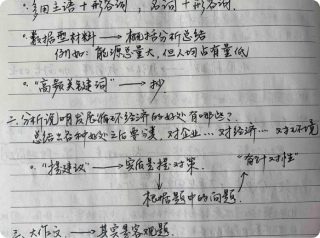 ·多用主语+形容词,名词+形容词.
·数据型材料 → 概括分析总结
例如: 能源总量大,但人均占有量低
·"高频关键词" → 抄
二.分析说明发展循环经济的好处有哪些?
总结±各种好处之后要分类,对企业…对经济…对环境
·"提建议" → 实质是提对策. "有针对性"
根据题中的问题
三.大作文 → 其实是客观题.